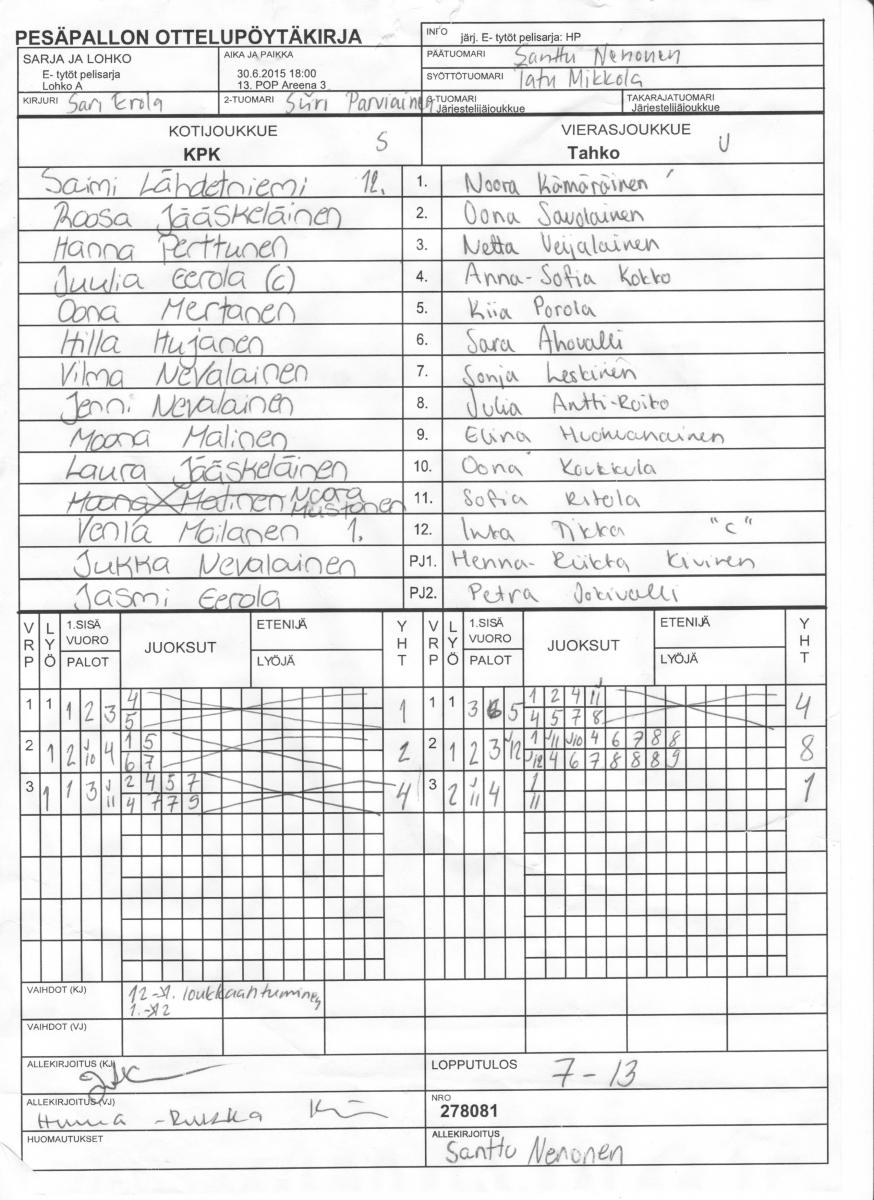 PESÄPALLON OTTELUPÖYTÄKIRJA
INFO järj. E- tytöt pelisarja: HP
SARJA JA LOHKO
E- tytöt pelisarja
Lohko A
AIKA JA PAIKKA
30.6.2015 18:00
13. POP Areena 3
PÄÄTUOMARI Santtu Nenonen
SYÖTTÖTUOMARI Tatu Mikkola
KIRJURI Sari Erola
2-TUOMARI Siiri Parviainen
-TUOMARI
Järjestelijäjoukkue
TAKARAJATUOMARI
Järjestelijäjoukkue
KOTIJOUKKUE S
KPK
VIERASJOUKKUE U
Tahko
Saimi Lähdetniemi 12. 1. Noora Kämäräinen
Roosa Jääskeläinen 2. Oona Savolainen
Hanna Perttunen 3. Netta Veijalainen
Juulia Eerola (c) 4. Anna-Sofia Kokko
Oona Mertanen 5. Kiia Porola
Hilla Hujanen 6. Sara Ahovalli
Vilma Nevalainen 7. Sonja Leskinen
Jenni Nevalainen 8. Julia Antti-Roiko
Moona Malinen 9. Elina
Laura Jääskeläinen 10. Oona Koukkula
Moona Malinen Noora Mustonen 11. Sofia Ritola
Venla Moilanen 1. 12. Inka Tikka "C"
Jukka Nevalainen PJ1. Henna-Riikka Kivinen
Jasmi Eerola PJ2. Petra Jokivalli
VRP LYÖ 1.SISÄ VUORO PALOT JUOKSUT ETENIJÄ LYÖJÄ YHT VRP LYÖ 1.SISÄ VUORO PALOT JUOKSUT ETENIJÄ LYÖJÄ YHT
1 1 1 2 3 4 1 1 1 3 6 5 1 2 4 11 4
5 4 5 7 8
2 1 2 J10 4 1 5 2 2 1 2 3 J12 1 J11 J10 4 6 7 8 8 8
6 7 J12 4 6 7 8 8 8 9
3 1 1 3 J11 2 4 5 7 4 3 2 J11 4 1 1
4 7 7 9 11
VAIHDOT (KJ) 12->1. loukkaantuminen
1.->12
VAIHDOT (VJ)
ALLEKIRJOITUS (KJ)
LOPPUTULOS 7-13
ALLEKIRJOITUS (VJ) Henna-Riikka
NRO
278081
HUOMAUTUKSET
ALLEKIRJOITUS
Santtu Nenonen